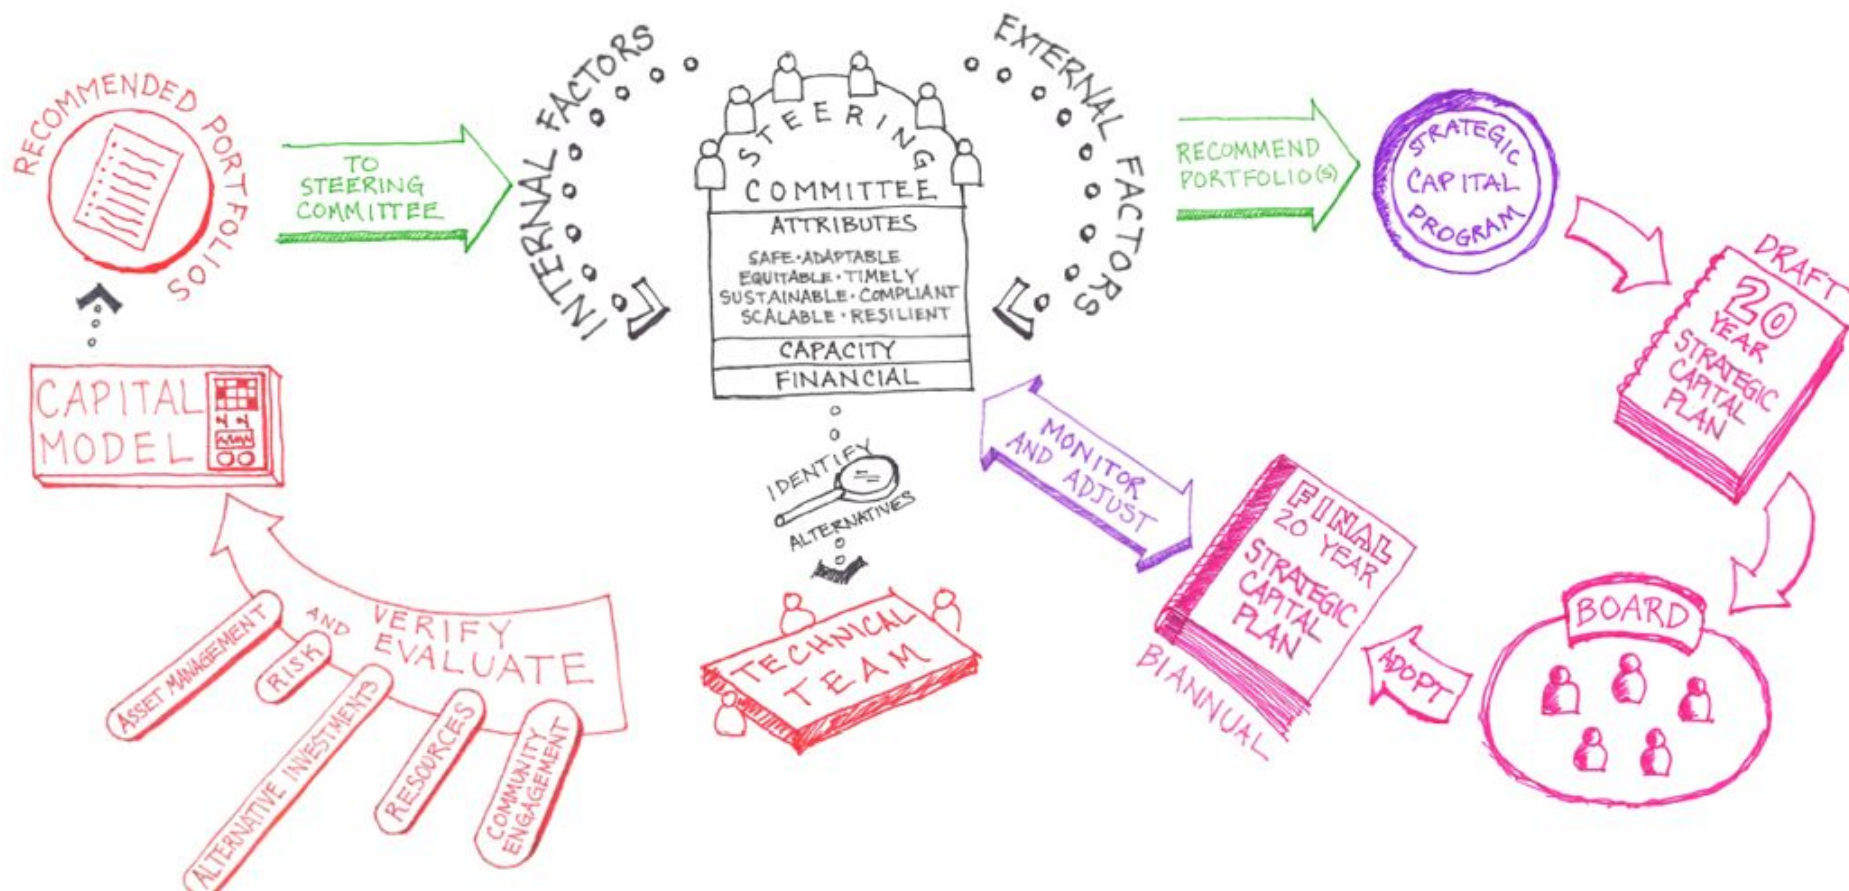 RECOMMENDED PORTFOLIOS
TO
STEERING
COMMITTEE
INTERNAL FACTORS
EXTERNAL FACTORS
STEERING
COMMITTEE
ATTRIBUTES
SAFE • ADAPTABLE
EQUITABLE • TIMELY
SUSTAINABLE • COMPLIANT
SCALABLE • RESILIENT
CAPACITY
FINANCIAL
RECOMMEND
PORTFOLIO(S)
STRATEGIC
CAPITAL
PROGRAM
DRAFT
20
YEAR
STRATEGIC
CAPITAL
PLAN
BOARD
ADOPT
FINAL
20 YEAR
STRATEGIC
CAPITAL
PLAN
BIANNUAL
MONITOR
AND ADJUST
IDENTIFY
ALTERNATIVES
TECHNICAL
TEAM
VERIFY
AND EVALUATE
ASSET MANAGEMENT
RISK
ALTERNATIVE INVESTMENTS
RESOURCES
COMMUNITY
ENGAGEMENT
CAPITAL
MODEL